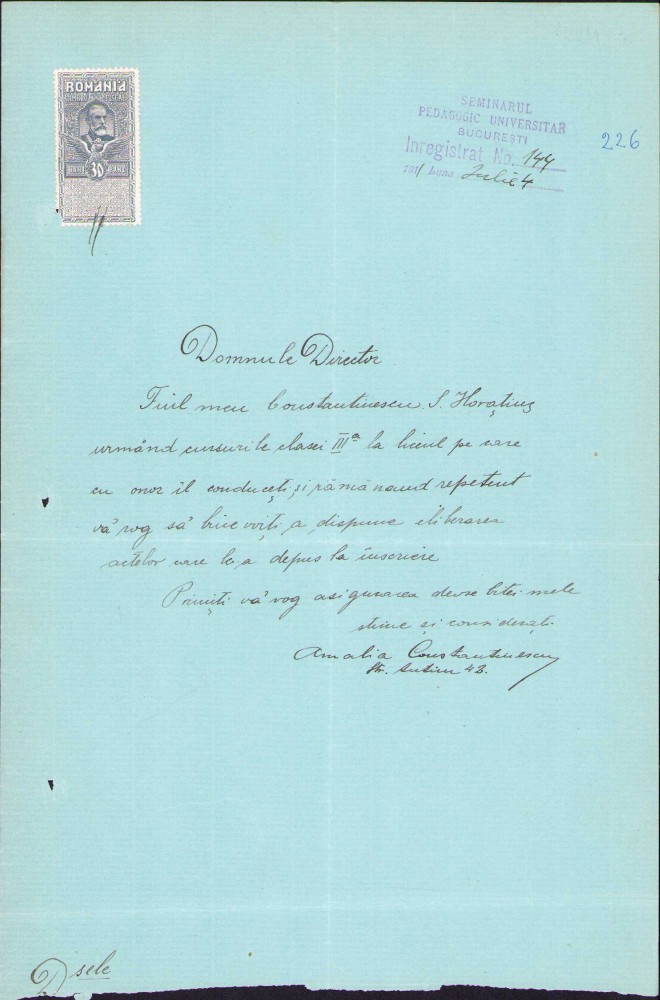 ROMÂNIA
TIMBRU FISCAL
30
BANI BANI
SEMINARUL
PEDAGOGIC UNIVERSITAR
BUCUREȘTI
Inregistrat No. 144
1911 luna Iulie 4
226
Domnule Director
Fiul meu Constantinescu S. Horațiu
urmând cursurile clasei IIIa la liceul pe care
cu onor îl conduceți, și rămânand repetent
vă rog să bine voiți a dispune eliberarea
actelor care le a depus la înscriere
Primiți vă rog asigurarea deose bitei mele
stime și considerați
Amalia Constantinescu
Str. 42.
Dsele